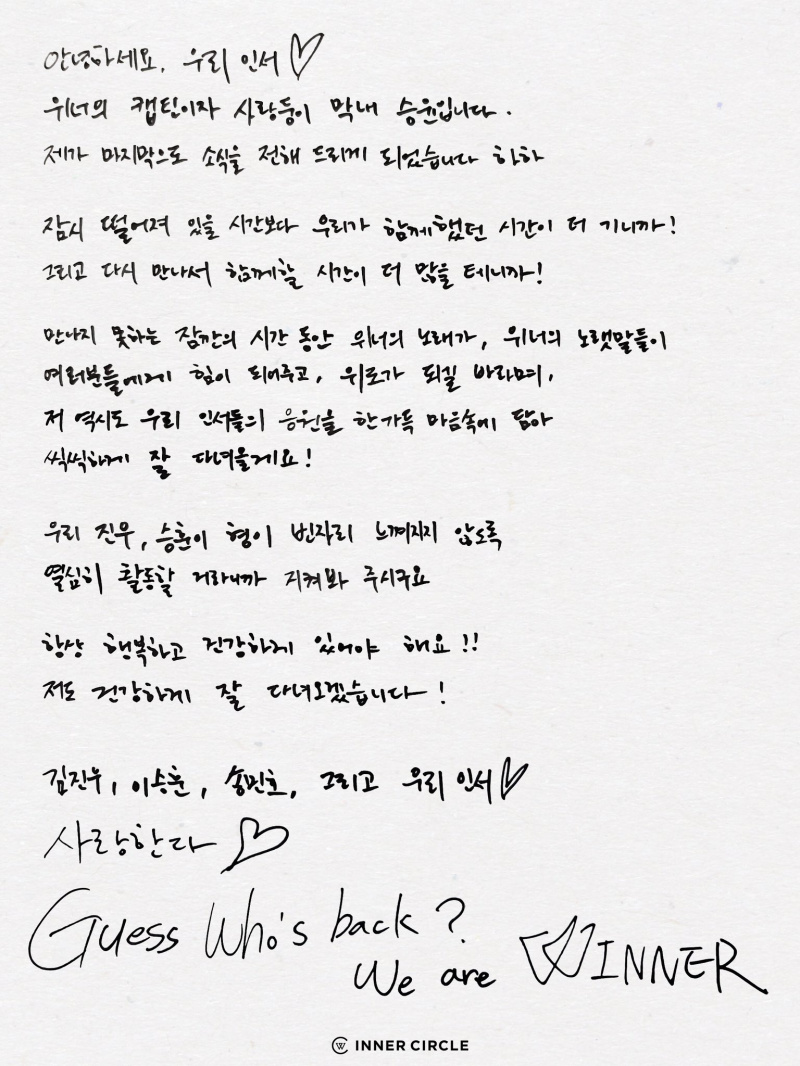 안녕하세요, 우리 인서♡
위너의 캡틴이자 사랑둥이 막내 승윤입니다.
제가 마지막으로 소식을 전해 드리게 되었습니다 하하
잠시 떨어져 있을 시간보다 우리가 함께했던 시간이 더 기니까!
그리고 다시 만나서 함께할 시간이 더 많을 테니까!
만나지 못하는 잠깐의 시간 동안 위너의 노래가, 위너의 노랫말들이
여러분들에게 힘이 되어주고, 위로가 되길 바라며,
저 역시도 우리 인서들의 응원을 한가득 마음속에 담아
씩씩하게 잘 다녀올게요!
우리 진우, 승훈이 형이 빈자리 느껴지지 않도록
열심히 활동할 거라니까 지켜봐 주시구요
항상 행복하고 건강하게 있어야 해요!!
저도 건강하게 잘 다녀오겠습니다!
김진우, 이승훈, 송민호, 그리고 우리 인서♡
사랑한다♡
Guess Who's back?
We are WINNER
INNER CIRCLE